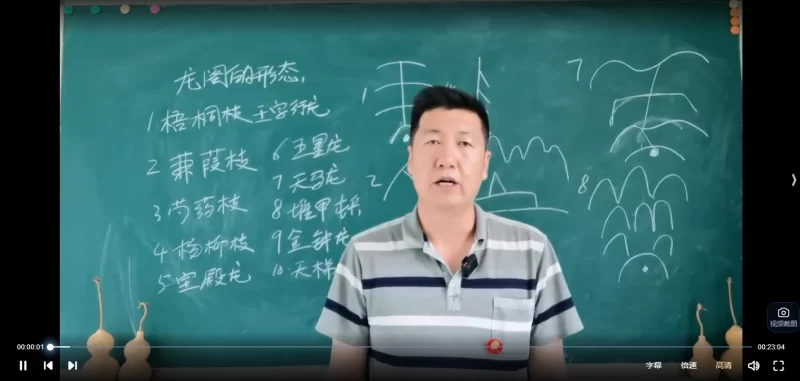 龙阁的形态,
1梧桐枝 王字行龙
2蒹葭枝
3芍药枝
4杨柳枝
5宝殿龙
6五星龙
7天马龙
8堆甲
9金钟龙
10天梯
1
2
7
8
00:00:01
00:23:04
字幕
倍速
高清
视频截图